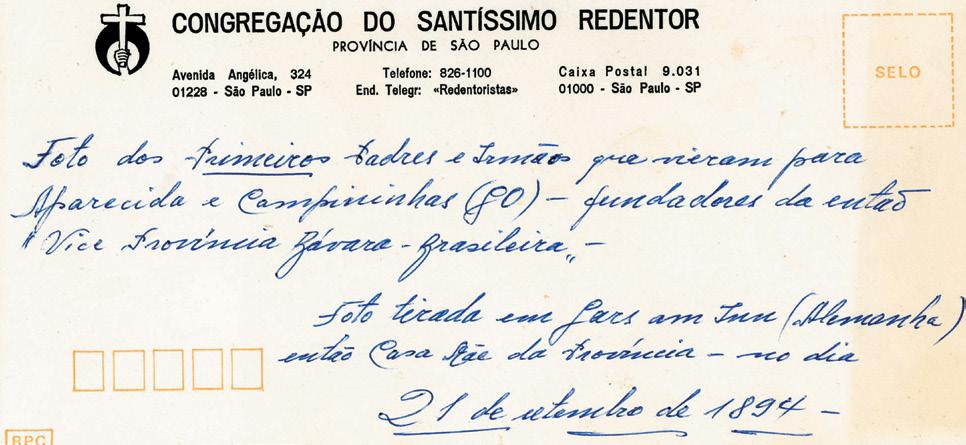 CONGREGAÇÃO DO SANTÍSSIMO REDENTOR
PROVÍNCIA DE SÃO PAULO
Avenida Angélica, 324 Telefone: 826-1100 Caixa Postal 9.031
01228 - São Paulo - SP End. Telegr: «Redentoristas» 01000 - São Paulo - SP
SELO
Foto dos Primeiros Padres e Irmãos que vieram para
Aparecida e Campininhas (GO) – fundadores da então
"Vice Província Bávara-Brasileira„ –
Foto tirada em Gars am Inn (Alemanha)
então Casa Mãe da Província – no dia
21 de setembro de 1894 –
RPC